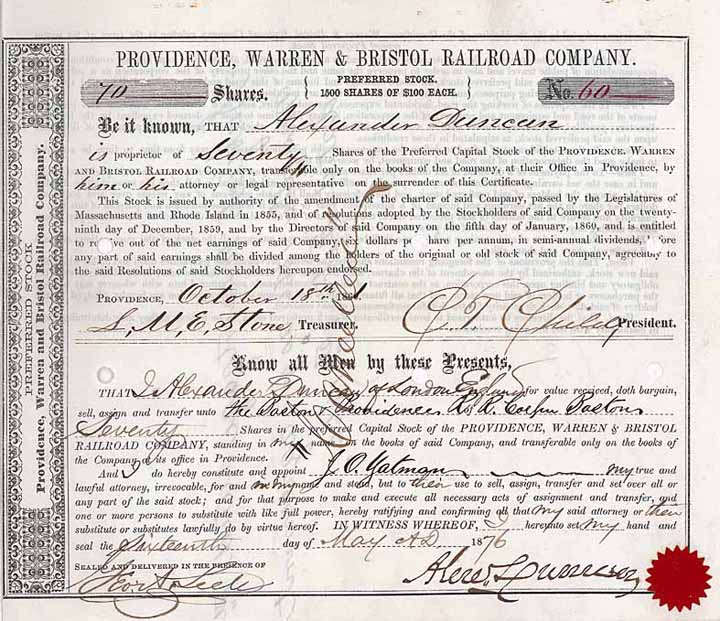 PROVIDENCE, WARREN & BRISTOL RAILROAD COMPANY.
PREFERRED STOCK.
70 Shares. 1500 SHARES OF $100 EACH. No. 60
Be it known, THAT Alexander Duncan
is proprietor of Seventy Shares of the Preferred Capital Stock of the PROVIDENCE, WARREN
AND BRISTOL RAILROAD COMPANY, transferable only on the books of the Company, at their Office in Providence, by
him or his attorney or legal representative on the surrender of this Certificate.
This Stock is issued by authority of the amendment of the charter of said Company, passed by the Legislatures of
Massachusetts and Rhode Island in 1855, and of resolutions adopted by the Stockholders of said Company on the twenty-
ninth day of December, 1859, and by the Directors of said Company on the fifth day of January, 1860, and is entitled
to receive out of the net earnings of said Company, dollars per share per annum, in semi-annual dividends, before
any part of said earnings shall be divided among the holders of the original or old stock of said Company, agreeably to
the said Resolutions of said Stockholders hereupon endorsed.
PROVIDENCE, October 18th 1861.
L, M, E, Stone Treasurer. President.
Know all Men by these Presents,
THAT I Alexander Duncan of London England for value received, doth bargain,
sell, assign and transfer unto the Boston & Providence R. R. Boston
Seventy Shares in the preferred Capital Stock of the PROVIDENCE, WARREN & BRISTOL
RAILROAD COMPANY, standing in my name on the books of said Company, and transferable only on the books of
the Company at its office in Providence.
And I do hereby constitute and appoint J. O. Yatman my true and
lawful attorney, irrevocable, for and in my name and stead, but to their use to sell, assign, transfer and set over all or
any part of the said stock; and for that purpose to make and execute all necessary acts of assignment and transfer, and
one or more persons to substitute with like full power, hereby ratifying and confirming all that my said attorney or their
substitute or substitutes lawfully do by virtue hereof. IN WITNESS WHEREOF, I hereunto set my hand and
seal the Sixteenth day of May AD 1876
SEALED AND DELIVERED IN THE PRESENCE OF
Alexr Duncan
PREFERRED STOCK
Providence, Warren and Bristol Railroad Company.